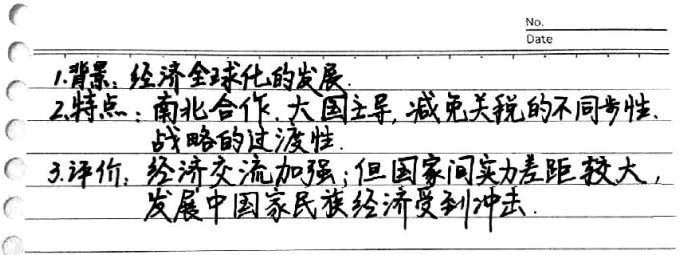 No.
Date
1.背景：经济全球化的发展.
2.特点：南北合作.大国主导,减免关税的不同步性.
战略的过渡性.
3.评价：经济交流加强;但国家间实力差距较大,
发展中国家民族经济受到冲击.